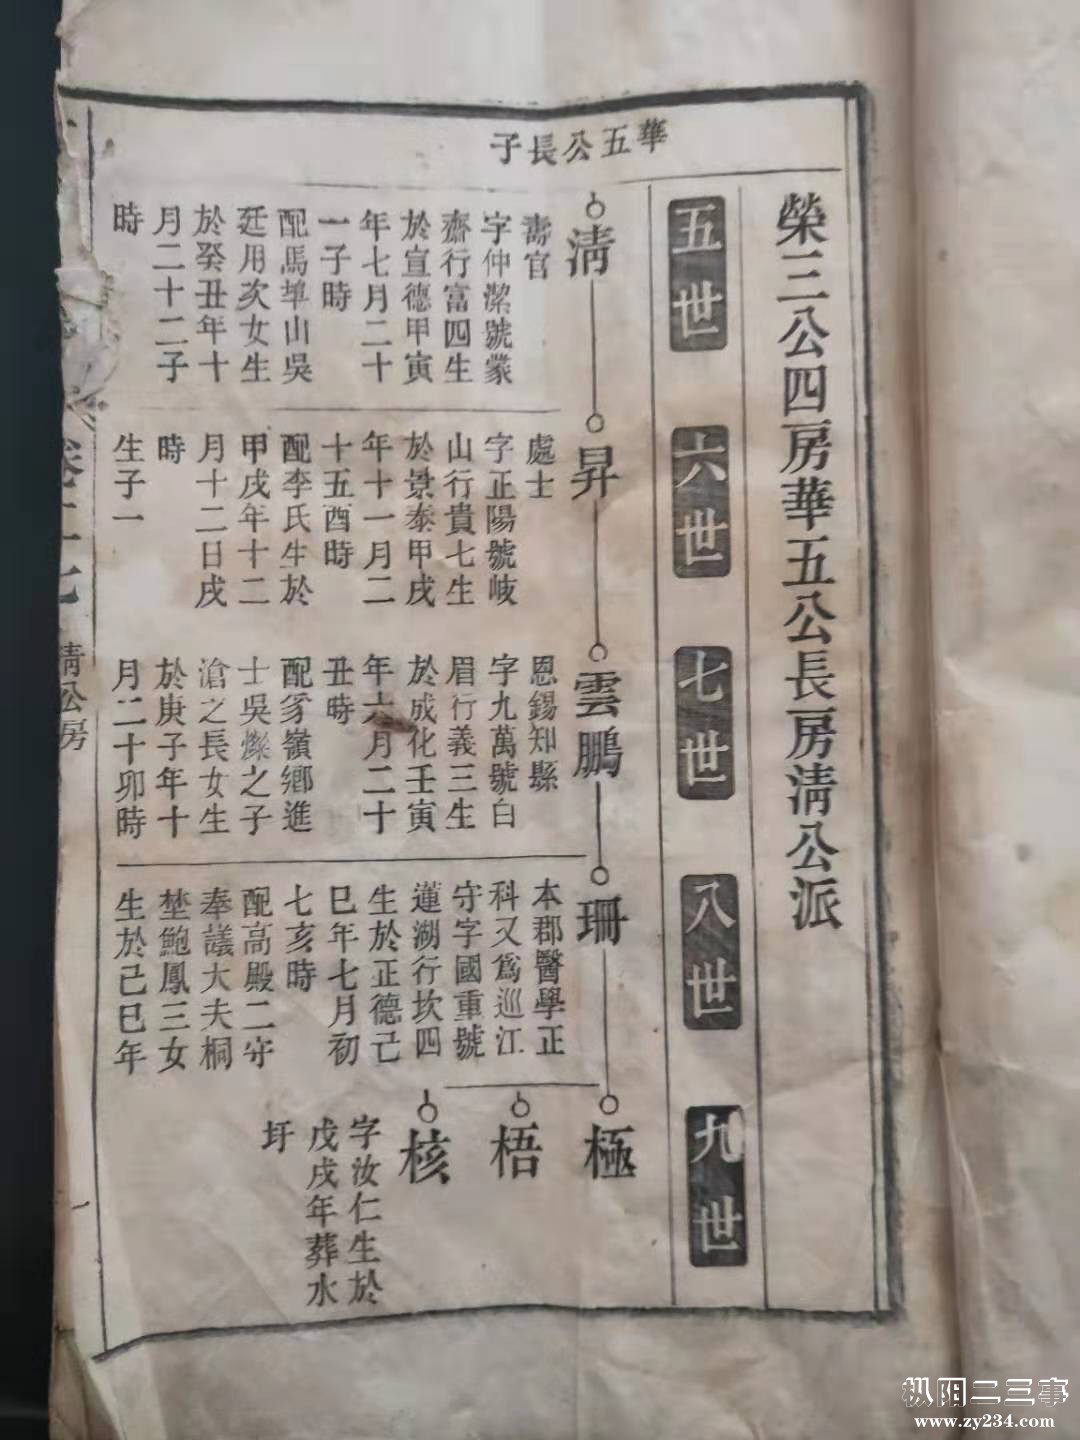 榮三公四房華五公長房淸公派
五世
六世
七世
八世
九世
華五公長子
淸
壽官
字仲潔號蒙
齋行富四生
於宣德甲寅
年七月二十
一子時
配馬埠山吳
廷用次女生
於癸丑年十
月二十二子
時
昇
處士
字正陽號岐
山行貴七生
於景泰甲戌
年十一月二
十五酉時
配李氏生於
甲戌年十二
月十二日戌
時
生子一
雲鵬
恩錫知縣
字九萬號白
眉行義三生
於成化壬寅
年六月二十
丑時
配豸嶺鄉進
士吳燦之子
滄之長女生
於庚子年十
月二十卯時
珊
本郡醫學正
科又爲巡江
守字國重號
蓮湖行坎四
生於正德己
巳年七月初
七亥時
配高殿二守
奉議大夫桐
埜鮑鳳三女
生於己巳年
極
梧
核
字汝仁生於
戊戌年葬水
圩
卷二十七
淸公房
一
枞阳二三事
www.zy234.com